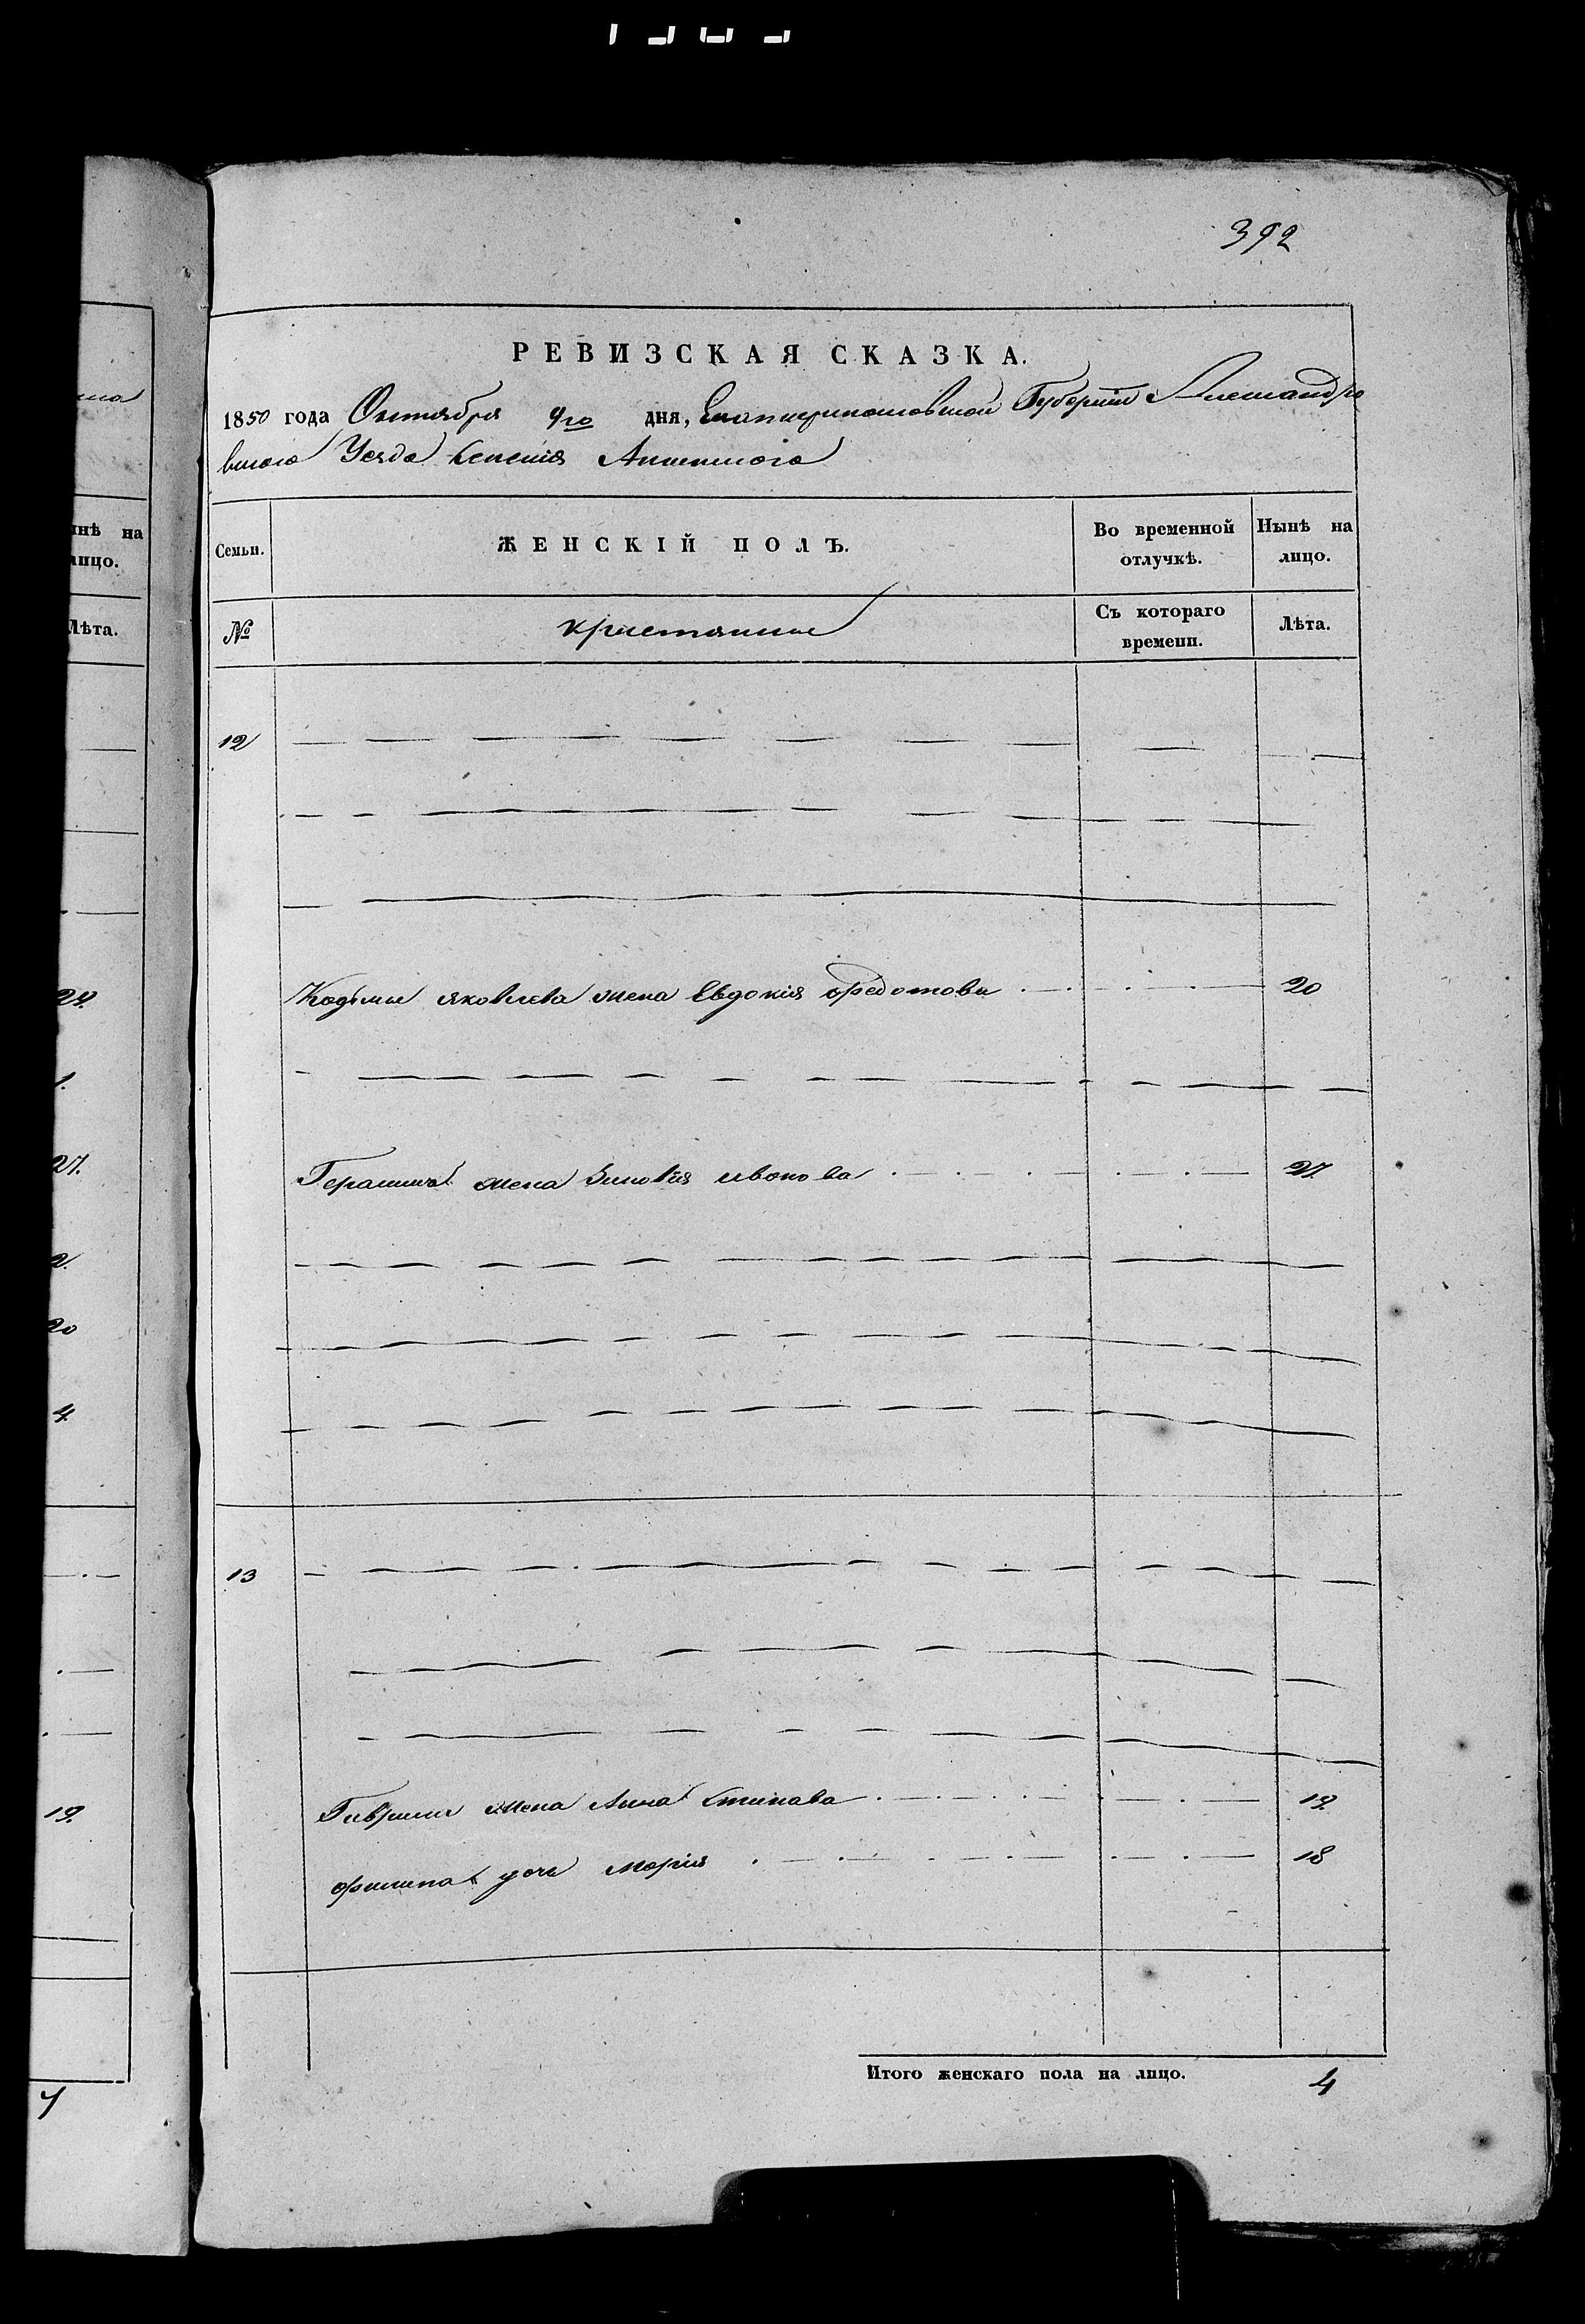 392
РЕВИЗСКАЯ СКАЗКА.
1850 года Октября 9го дня, Екатеринославской Губернии Александро
вскаго Уезда Селенія
Семьи.
ЖЕНСКІЙ ПОЛЪ.
Во временной отлучкѣ.
Нынѣ на лицо.
№
крестяние
Съ котораго времени.
Лѣта.
12
Кодьмы яковлева жена Евдокія Федотова 20
Герасима жена Зиновія ивонова 27.
13
Гаврила жена Анна Стипава 19.
филипа дочь Марія 18
Итого женскаго пола на лицо. 4
инѣ на
лицо.
Лѣта.
29.
1.
27.
2.
20
4.
19.